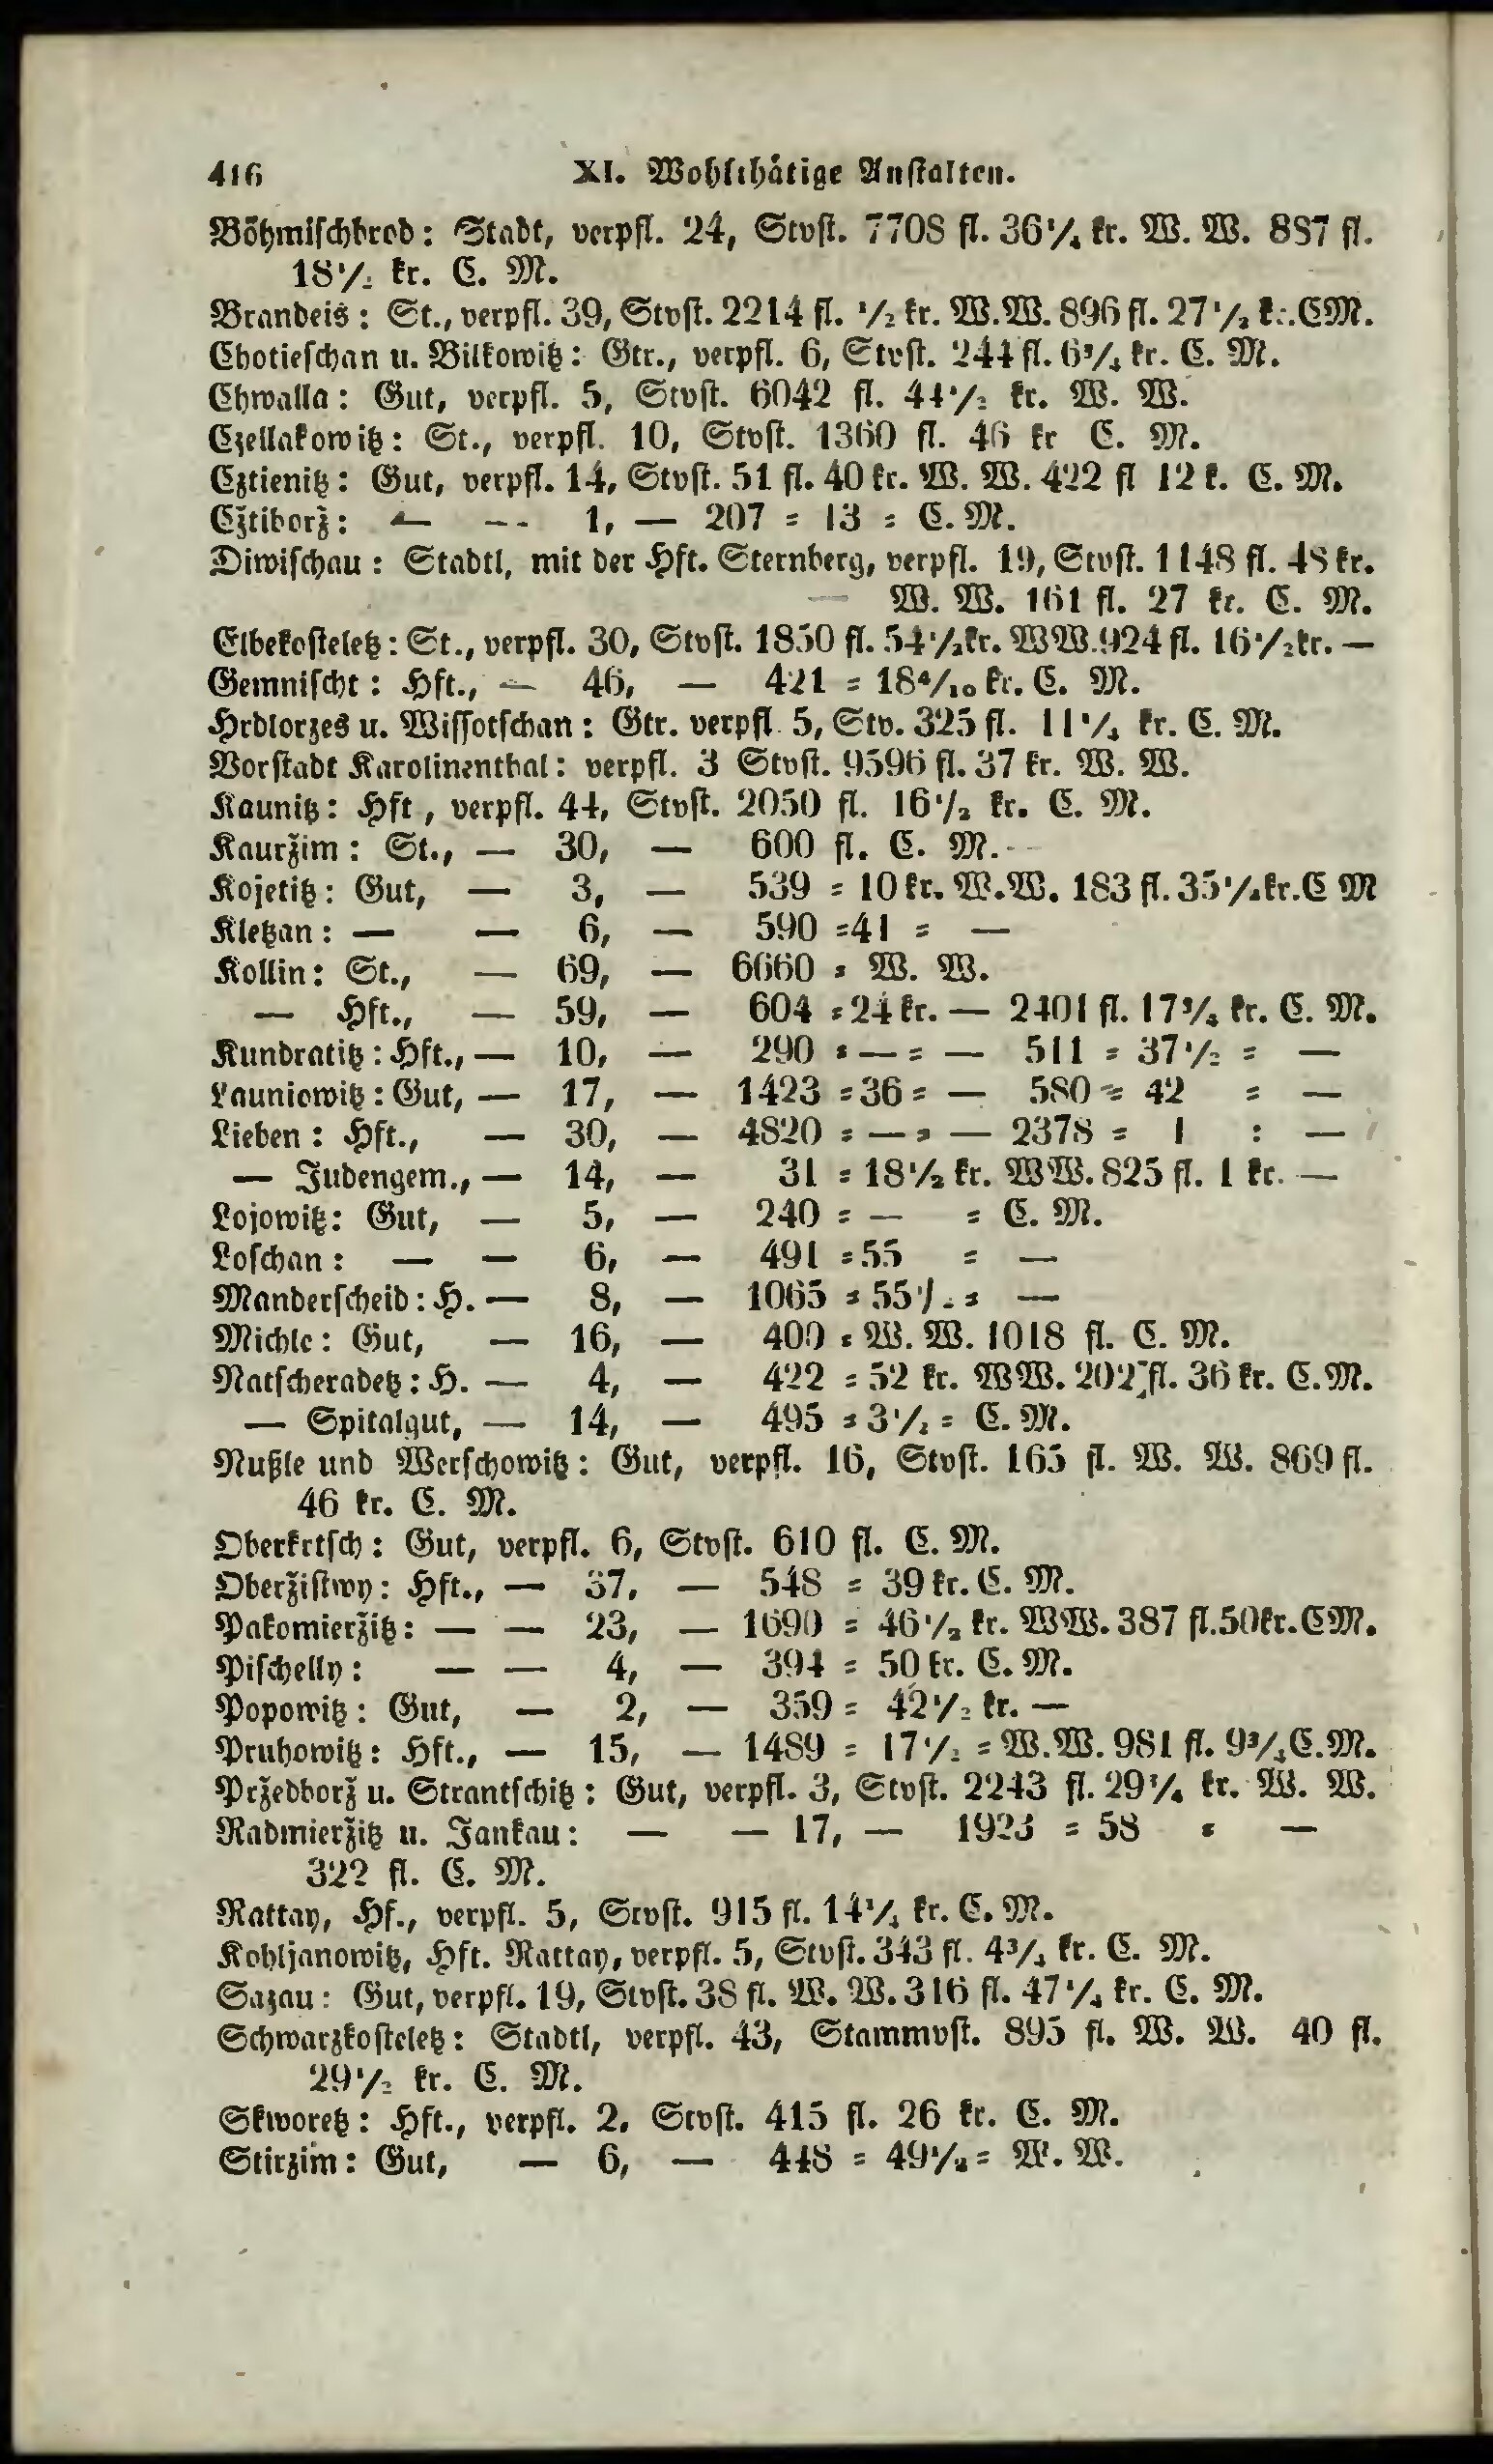 416 XI. Wohlthätige Anstalten.
Böhmischbrod: Stadt, verpfl. 24, Stvst. 7708 fl. 36¼ kr. W. W. 887 fl.
18½ kr. C. M.
Brandeis: St., verpfl. 39, Stvst. 2214 fl. ½ kr. W.W. 896 fl. 27½ kr. CM.
Chotieschan u. Bilkowitz: Gtr., verpfl. 6, Stvst. 244 fl. 6¾ kr. C. M.
Chwalla: Gut, verpfl. 5, Stvst. 6042 fl. 44½ kr. W. W.
Czellakowitz: St., verpfl. 10, Stvst. 1360 fl. 46 kr C. M.
Cztienitz: Gut, verpfl. 14, Stvst. 51 fl. 40 kr. W. W. 422 fl 12 k. C. M.
Cžtiborž: — — 1, — 207 = 13 = C. M.
Diwischau: Stadtl, mit der Hft. Sternberg, verpfl. 19, Stvst. 1148 fl. 48 kr.
W. W. 161 fl. 27 kr. C. M.
Elbekosteletz: St., verpfl. 30, Stvst. 1850 fl. 54½ kr. WW. 924 fl. 16½ kr. —
Gemnischt: Hft., — 46, — 421 = 18⁴/₁₀ kr. C. M.
Hrdlorzes u. Wissotschan: Gtr. verpfl. 5, Stv. 325 fl. 11¼ kr. C. M.
Vorstadt Karolinenthal: verpfl. 3 Stvst. 9596 fl. 37 kr. W. W.
Kaunitz: Hft, verpfl. 44, Stvst. 2050 fl. 16½ kr. C. M.
Kauržim: St., — 30, — 600 fl. C. M.
Kojetitz: Gut, — 3, — 539 = 10 kr. W.W. 183 fl. 35¼ kr. C M
Kletzan: — — 6, — 590 = 41 = —
Kollin: St., — 69, — 6660 = W. W.
— Hft., — 59, — 604 = 24 kr. — 2401 fl. 17¾ kr. C. M.
Kundratitz: Hft., — 10, — 290 = — = — 511 = 37½ = —
Launiowitz: Gut, — 17, — 1423 = 36 = — 580 = 42 = —
Lieben: Hft., — 30, — 4820 = — = — 2378 = 1 : —
— Judengem., — 14, — 31 = 18½ kr. WW. 825 fl. 1 kr. —
Lojowitz: Gut, — 5, — 240 = — = C. M.
Loschan: — — 6, — 491 = 55 = —
Manderscheid: H. — 8, — 1065 = 55 = —
Michle: Gut, — 16, — 400 = W. W. 1018 fl. C. M.
Natscheradetz: H. — 4, — 422 = 52 kr. WW. 202 fl. 36 kr. C.M.
— Spitalgut, — 14, — 495 = 3½ = C. M.
Nußle und Werschowitz: Gut, verpfl. 16, Stvst. 165 fl. W. W. 869 fl.
46 kr. C. M.
Oberkrtsch: Gut, verpfl. 6, Stvst. 610 fl. C. M.
Oberžistwy: Hft., — 37, — 548 = 39 kr. C. M.
Pakomieržitz: — — 23, — 1690 = 46½ kr. WW. 387 fl. 50kr. CM.
Pischelly: — — 4, — 394 = 50 kr. C. M.
Popowitz: Gut, — 2, — 359 = 42½ kr. —
Pruhowitz: Hft., — 15, — 1489 = 17½ = W.W. 981 fl. 9¾ C.M.
Pržedborž u. Strantschitz: Gut, verpfl. 3, Stvst. 2243 fl. 29¼ kr. W. W.
Radmieržitz u. Jankau: — — 17, — 1923 = 58 = —
322 fl. C. M.
Rattay, Hf., verpfl. 5, Stvst. 915 fl. 14¼ kr. C. M.
Kobljanowitz, Hft. Rattay, verpfl. 5, Stvst. 343 fl. 4¾ kr. C. M.
Sazau: Gut, verpfl. 19, Stvst. 38 fl. W. W. 316 fl. 47¼ kr. C. M.
Schwarzkosteletz: Stadtl, verpfl. 43, Stammvst. 895 fl. W. W. 40 fl.
29½ kr. C. M.
Skworetz: Hft., verpfl. 2, Stvst. 415 fl. 26 kr. C. M.
Stirzim: Gut, — 6, — 448 = 49½ = W. W.